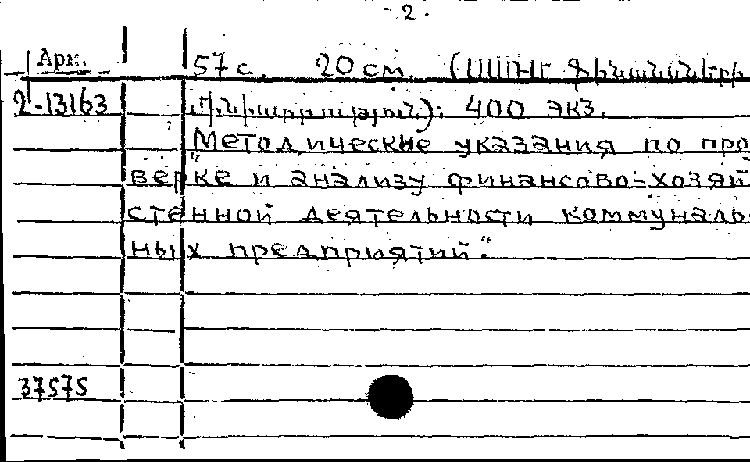 - 2 -
Арм. 57 с. 20 см. (ՍՍՌՄ Ֆինանսների
2-13163 400 экз.
„Методические указания по про
верке и анализу финансово-хозяй
стенной деятельности коммуналь
ных предприятий“.
37575